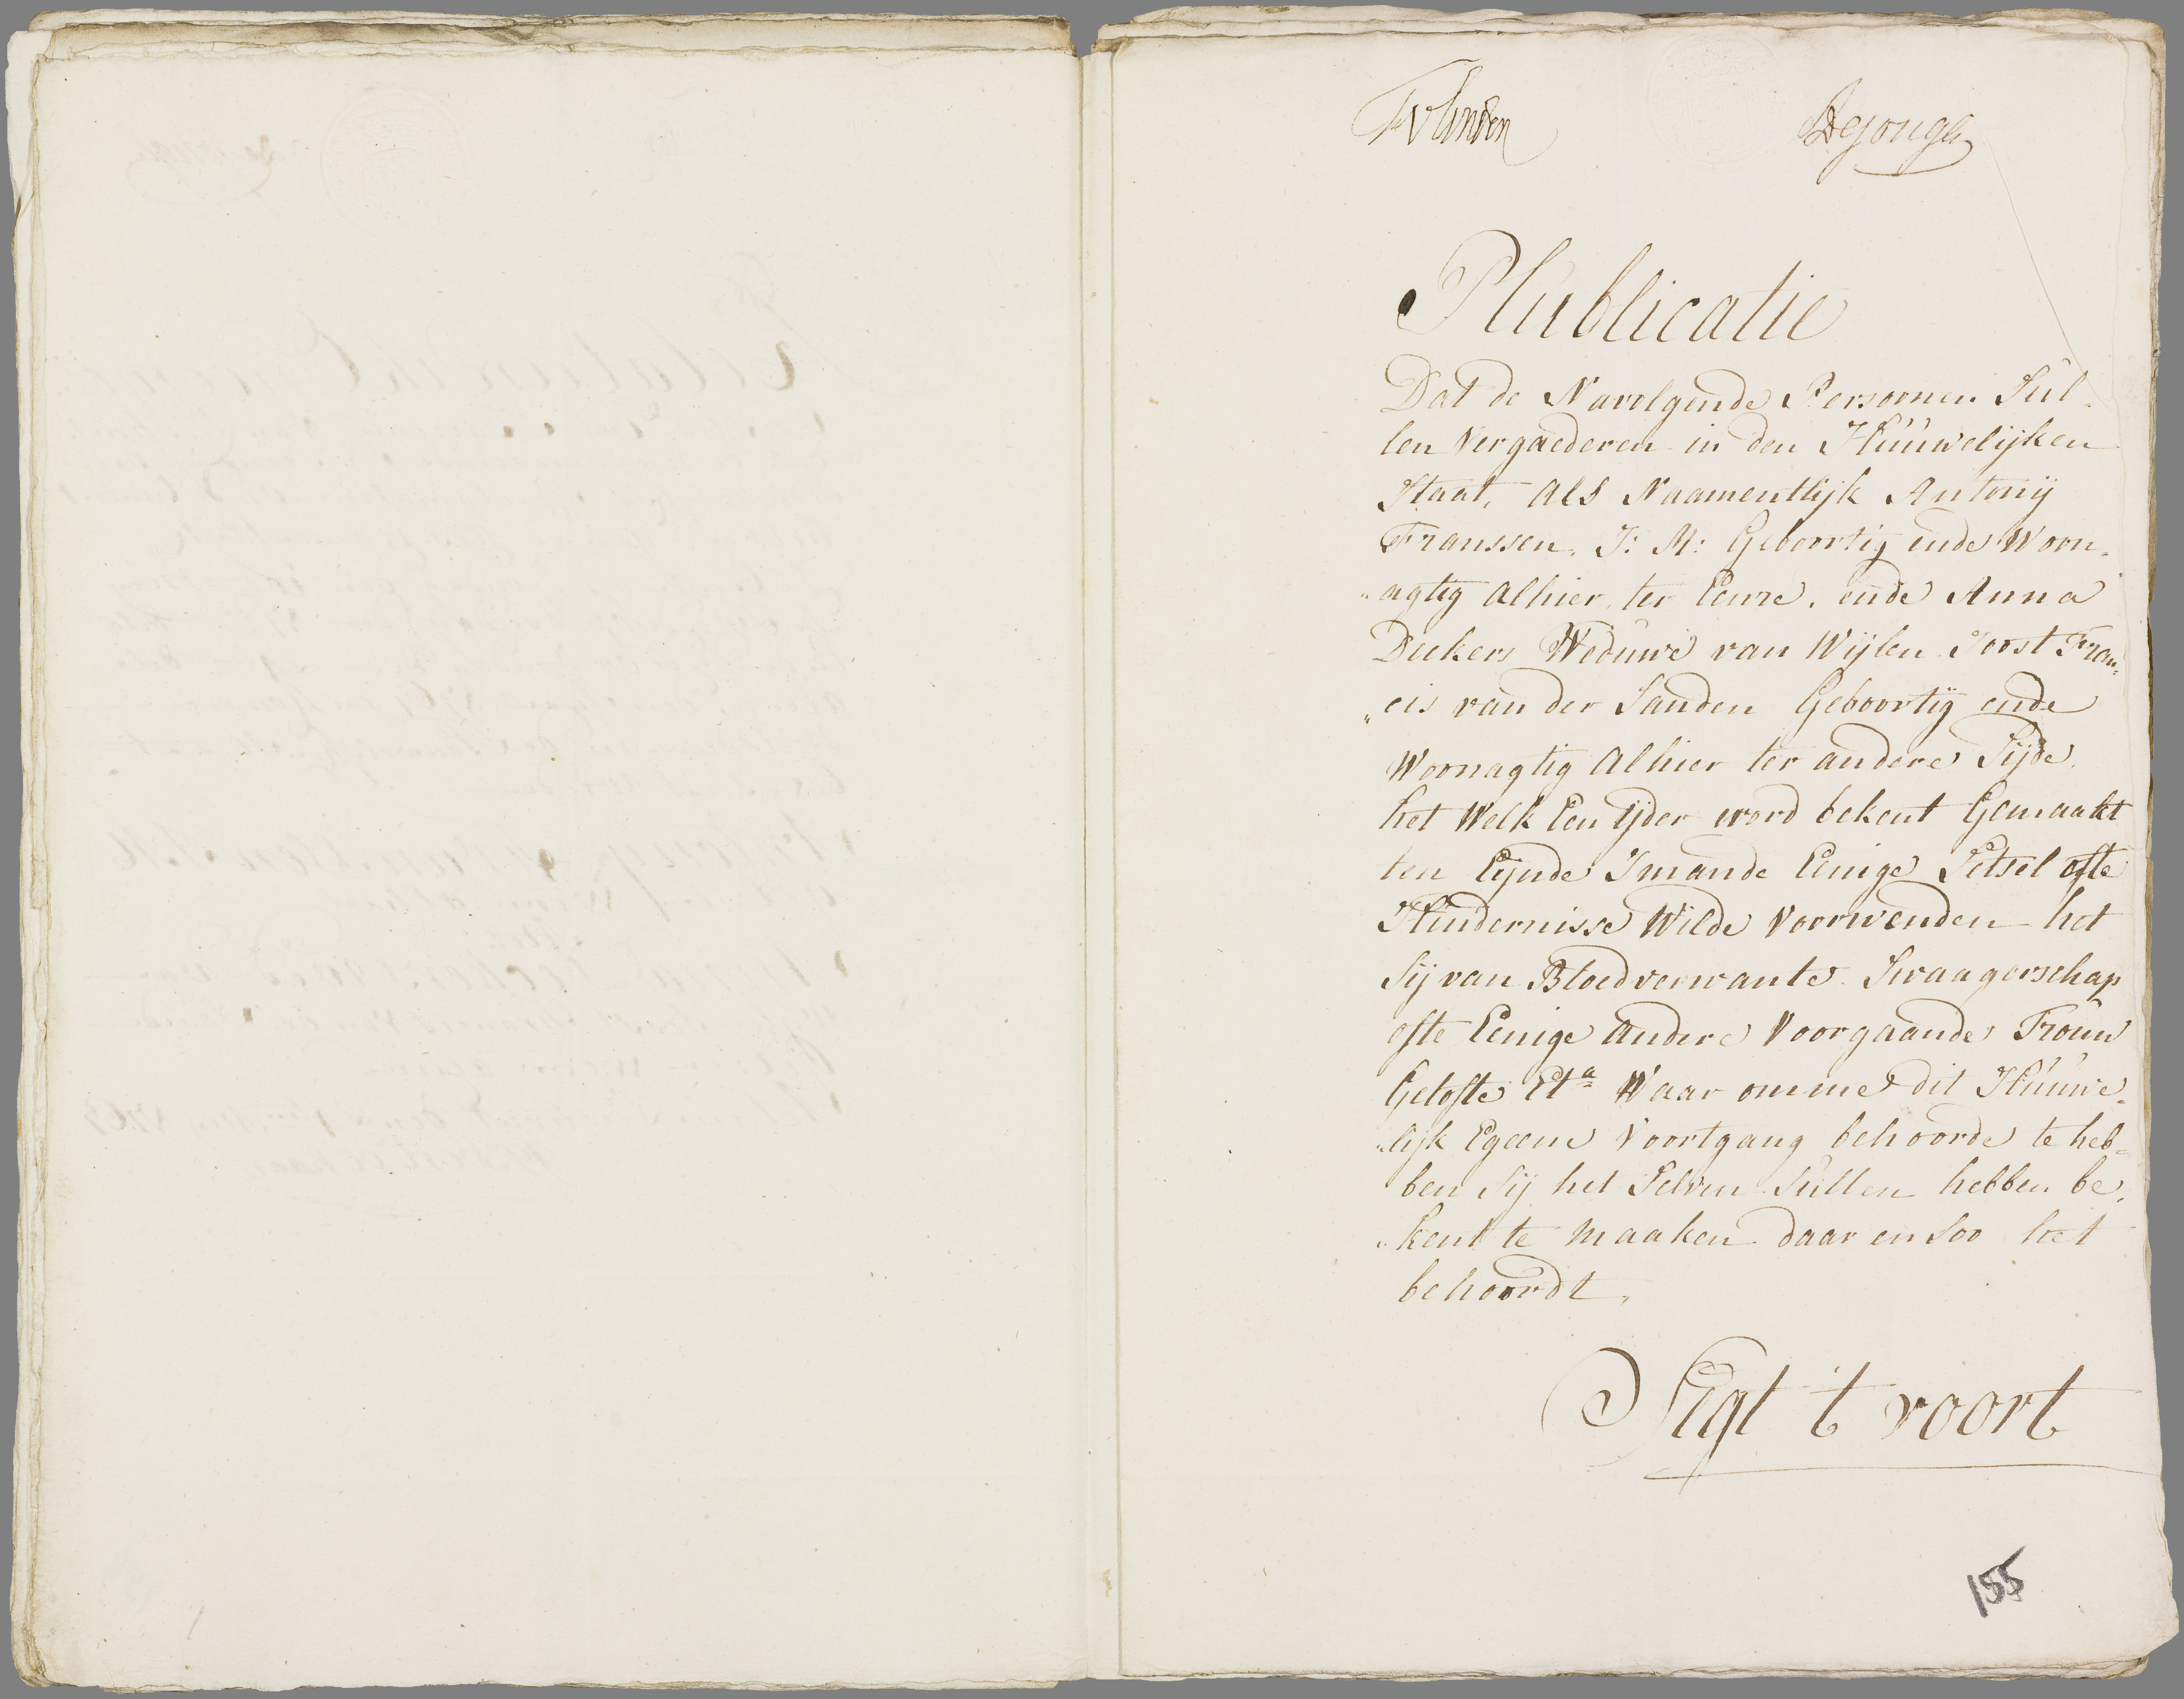 FvLinden
Dejongh
Publicatie
Dat de Navolgende Persoonen Sul„
len Vergaederen in den Huuwelijken
Staat, als Naamentlijk Antonij
Franssen. J: M: Geboortig ende Woon„
„agtig Alhier ter Eenre. ende Anna
Deckers Weduwe van Wijlen Joost Fran„
„cis van der Sanden Geboortig ende
Woonagtig Alhier ter andere Sijde.
het Welk Een Ijder word bekent Gemaakt
ten Eijnde Imande Eenige Letsel ofte
Hindernisse Wilde Voorwenden het
Sij van Bloedverwante Swaagerschap
ofte Eenige Andere Voorgaande Trouw
Gelofte Eta Waar omme dit Huuwe„
„lijk Egeene Voortgang behoorde te heb„
ben Sij het Selven Sullen hebben be„
„kent te maaken daar en Soo het
behoordt„
Segt 't voort
155